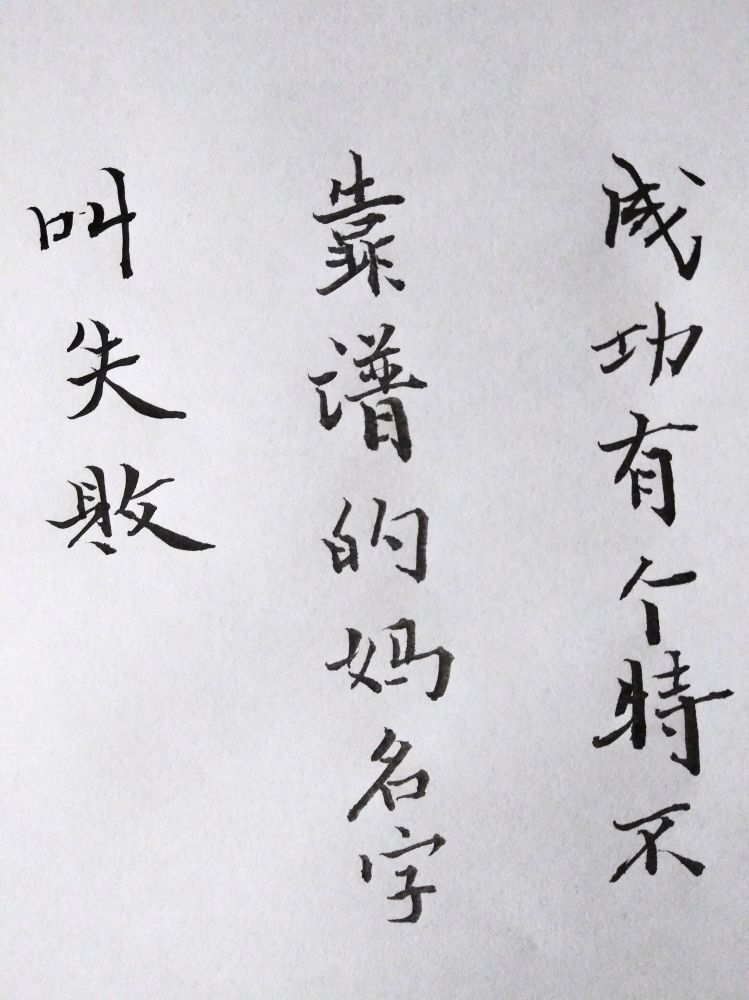 成功有个特不
靠谱的妈名字
叫失败